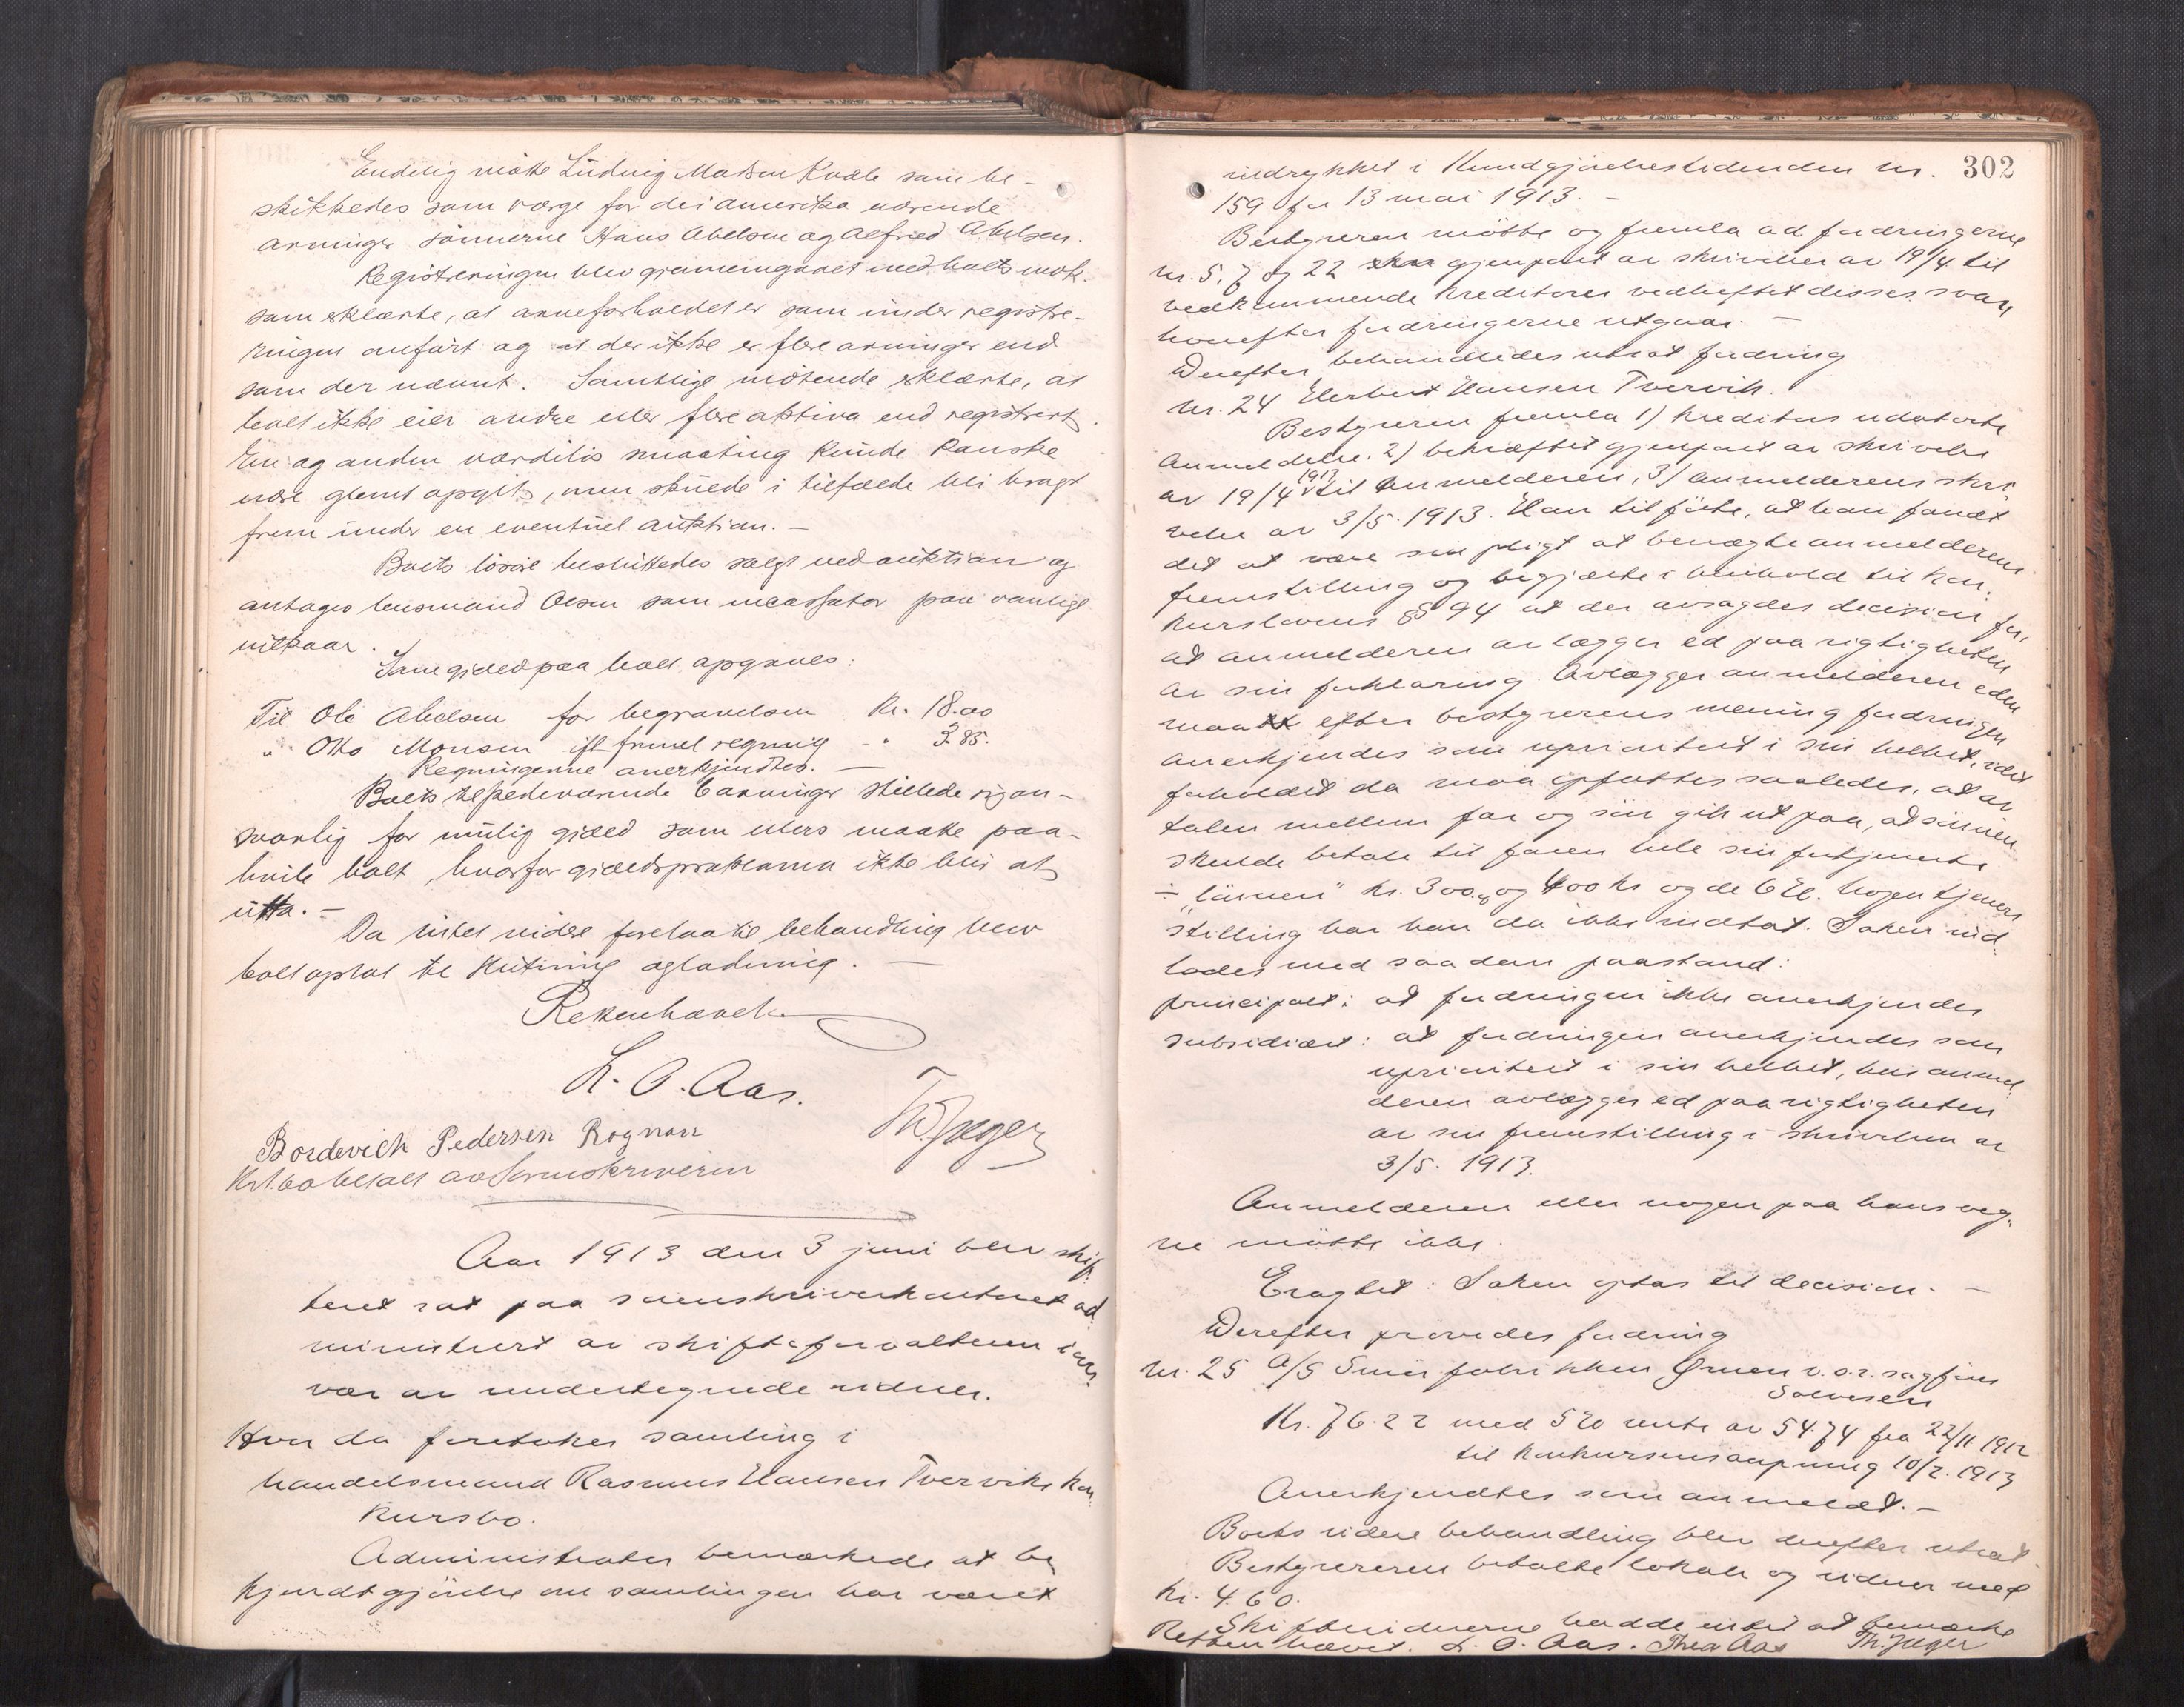 Endelig møtte Ludvig Matsen Kvæle som be-
skikkedes som værge for de i amerika værende
arvinger sönnerne Hans Abelsen og Alfred Abelsen.
Registreringen blev gjennemgaaet med boets vedk.
som erklærte, at arveforholdet er som under registre-
ringen anfört og at der ikke er flere arvinger end
som der nævnt. Samtlige mötende erklærte, at
boet ikke eier andre eller flere aktiva end registrert.
En og anden værdilös smaating kunde kanske
være glemt opgit, men skulde i tilfælde bli bragt
frem under en eventuel auktion. -
Boets lösöre besluttedes solgt ved auktion og
antages lensmand Olsen som incassator paa vanlige
vilkaar.
Som gjæld paa boet opgaves:
Til Ole Abelsen for begravelsen Kr. 18.00
" Otto Monsen ifl. freml. regning - " 3.85.
Regningerne anerkjendtes. -
Boets tilstedeværende 6 arvinger stillede sig an-
svarlig for mulig gjæld som ellers maatte paa-
hvile boet, hvorfor gjældsproklama ikke blir at
utta. -
Da intet videre foretokes til behandling blev
boet optat til slutning og lodning. -
Retten hævet
L. O. Aas.
Th. Jæger
Bordevich Pedersen Rognan
Kr. 1.60 betalt av Sorenskriveren
Aar 1913 den 3 juni blev skif-
teret sat paa sorenskriverkontoret ad-
ministrert av skifteforvalteren i over-
vær av undertegnede vidner.
Hvor da foretokes samling i
handelsmand Rasmus Hansen Tverviks kon-
kursbo.
Administrator bemærkede at be-
kjendtgjörelse om samlingen har været
302
indrykket i Kundgjörelsestidenden nr.
159 for 13 mai 1913. -
Bestyreren møtte og fremla ad fordringerne
nr. 5, 7 og 22 gjenpart av skrivelser av 19/4 til
vedkommende kreditorer vedheftet disses svar,
hvorefter fordringerne utgaar. -
Derefter behandledes utsat fordring
nr. 24 Herbert Hansen Tvervik.
Bestyreren fremla 1) kreditors udaterte
anmeldelse, 2) bekræftet gjenpart av skrivelse
av 19/4 1913 til anmelderen, 3) anmelderens skri-
velse av 3/5. 1913. Han tilföiet, at han fandt
det at være sin pligt at benegte anmelderens
fremstilling og begjærte i henhold til kon-
kurslovens § 94 at der avsagdes decision for,
at anmelderen avlægger ed paa rigtigheten
av sin forklaring. Avlægger anmelderen eden
maa efter bestyrerens mening fordringen
anerkjendes som uprioritert i sin helhet, idet
forholdet da maa opfattes saaledes, at av-
talen mellem far og sön gik ut paa, at sönnen
skulde betale til faren hele sin fortjeneste
÷ "lönnen" kr. 300.00 og 400 kr og de 6 %. Nogen tjener-
stilling har han da ikke indtat. Saken ind-
lodes med saadan paastand:
principalt: at fordringen ikke anerkjendes
subsidiært: at fordringen anerkjendes som
uprioritert i sin helhet, hvis anmel-
deren avlægger ed paa rigtigheten
av sin fremstilling i skrivelsen av
3/5. 1913.
Anmelderen eller nogen paa hans veg-
ne møtte ikke.
Eragtet: Saken optas til decision. -
Derefter prövedes fordring
nr. 25 A/S Smörfabrikken Ørnen v. o.r. sagförer
Solvesen
Kr. 76.22 med 5 % rente av 54.74 fra 22/11 1912
til konkursens aapning 10/2. 1913
Anerkjendtes som anmeldt. -
Boets videre behandling blev derefter utsat.
Bestyreren betalte lokale og vidner med
kr. 4.60.
Skiftevidnerne hadde intet at bemærke
Retten hævet. L. O. Aas. Thea Aas Th. Jæger